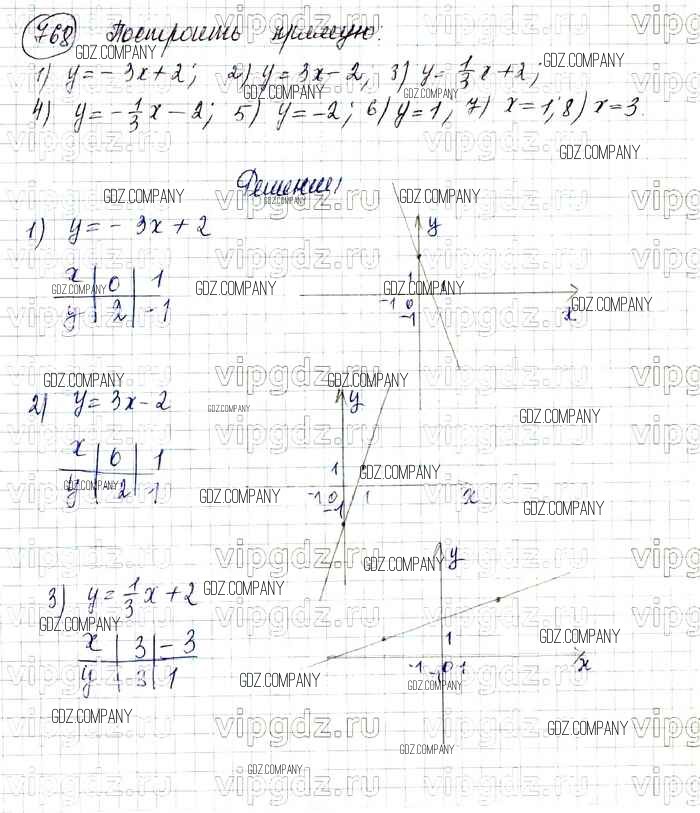 768 Построить прямую:
1) y = -3x + 2; 2) y = 3x - 2, 3) y = 1/3 x + 2;
4) y = -1/3 x - 2; 5) y = -2; 6) y = 1, 7) x = 1, 8) x = 3
Решение:
1) y = -3x + 2
x 0 1
y 2 -1
y
1 1
-1 0
-1
x
2) y = 3x - 2
x 0 1
y -2 1
y
1
-1 0 1
-1
x
3) y = 1/3 x + 2
x 3 -3
y 3 1
y
1
-1 0 1
-1
x
GDZ.COMPANY
vipgdz.ru